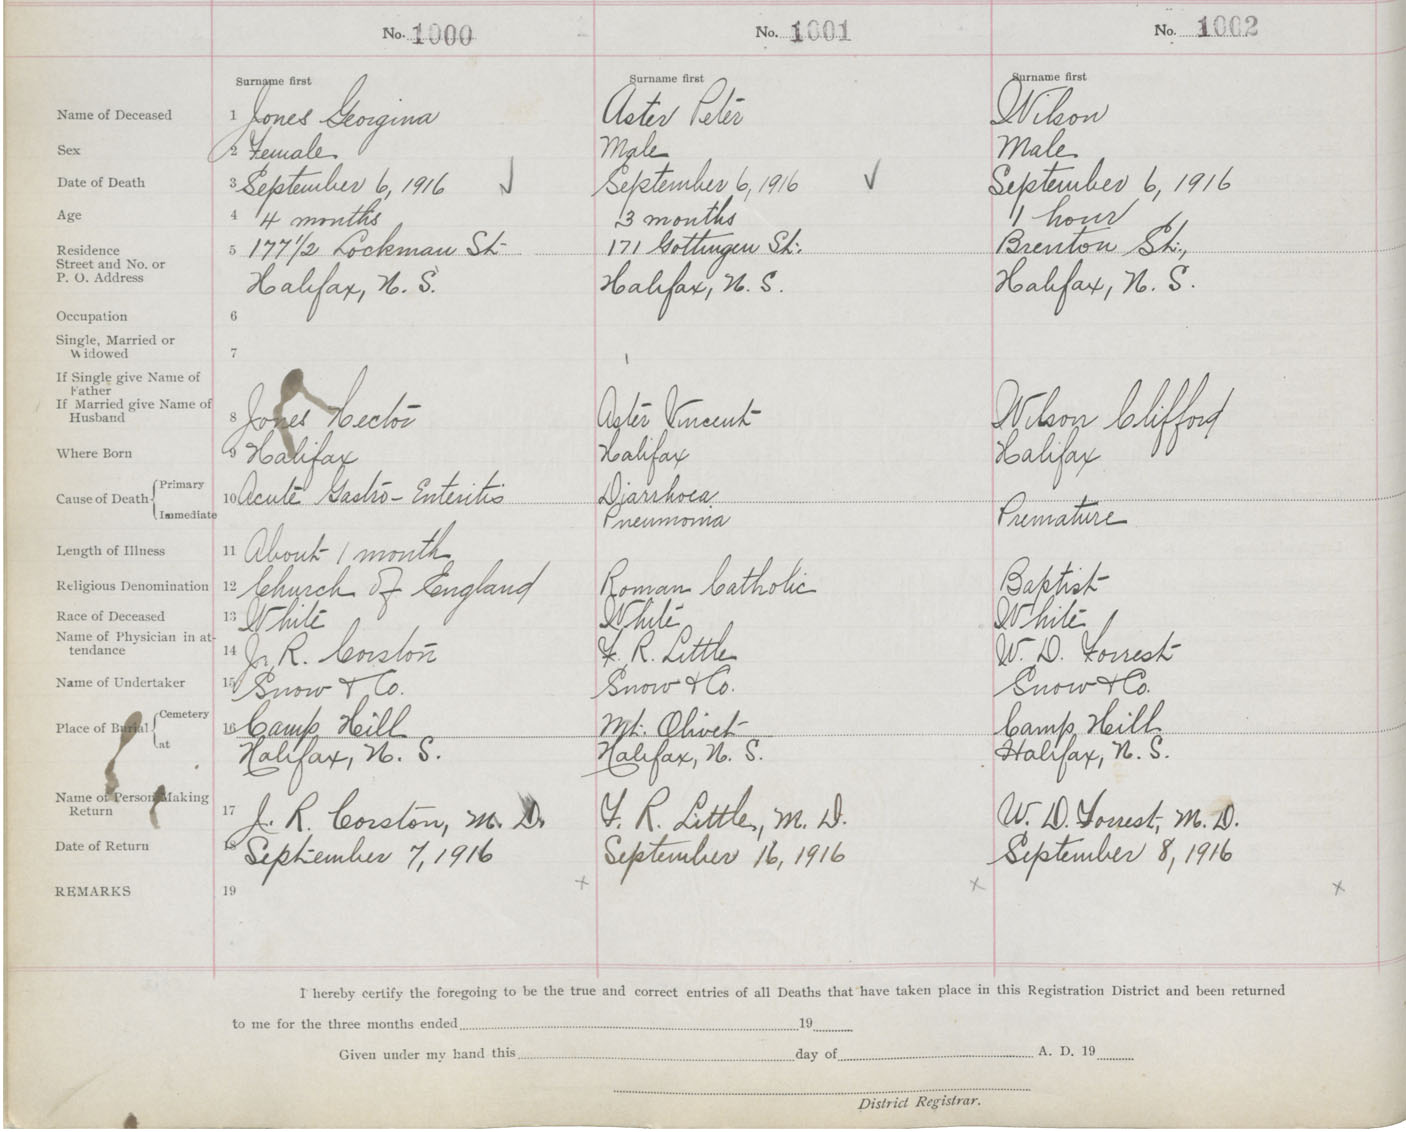 No. 1000 No. 1001 No. 1002
Surname first Surname first Surname first
Name of Deceased 1 Jones Georgina Aster Peter Wilson
Sex 2 Female Male Male
Date of Death 3 September 6, 1916 ✓ September 6, 1916 ✓ September 6, 1916
Age 4 4 months 3 months 1 hour
Residence 5 177 1/2 Lockman St. 171 Gottingen St. Brenton St.,
Street and No. or
P. O. Address Halifax, N. S. Halifax, N. S. Halifax, N. S.
Occupation 6
Single, Married or
Widowed 7
If Single give Name of
Father
If Married give Name of
Husband 8 Jones Hector Aster Vincent Wilson Clifford
Where Born 9 Halifax Halifax Halifax
Cause of Death { Primary 10 Acute Gastro-Enteritis Diarrhoea
Immediate Pneumonia Premature
Length of Illness 11 About 1 month
Religious Denomination 12 Church of England Roman Catholic Baptist
Race of Deceased 13 White White White
Name of Physician in at-
tendance 14 J. R. Corston F. R. Little W. D. Forrest
Name of Undertaker 15 Snow & Co. Snow & Co. Snow & Co.
Place of Burial { Cemetery 16 Camp Hill Mt. Olivet Camp Hill
at Halifax, N. S. Halifax, N. S. Halifax, N. S.
Name of Person Making
Return 17 J. R. Corston, M. D. F. R. Little, M. D. W. D. Forrest, M. D.
Date of Return 18 September 7, 1916 September 16, 1916 September 8, 1916
REMARKS 19 x x x
I hereby certify the foregoing to be the true and correct entries of all Deaths that have taken place in this Registration District and been returned
to me for the three months ended 19
Given under my hand this day of A. D. 19
District Registrar.